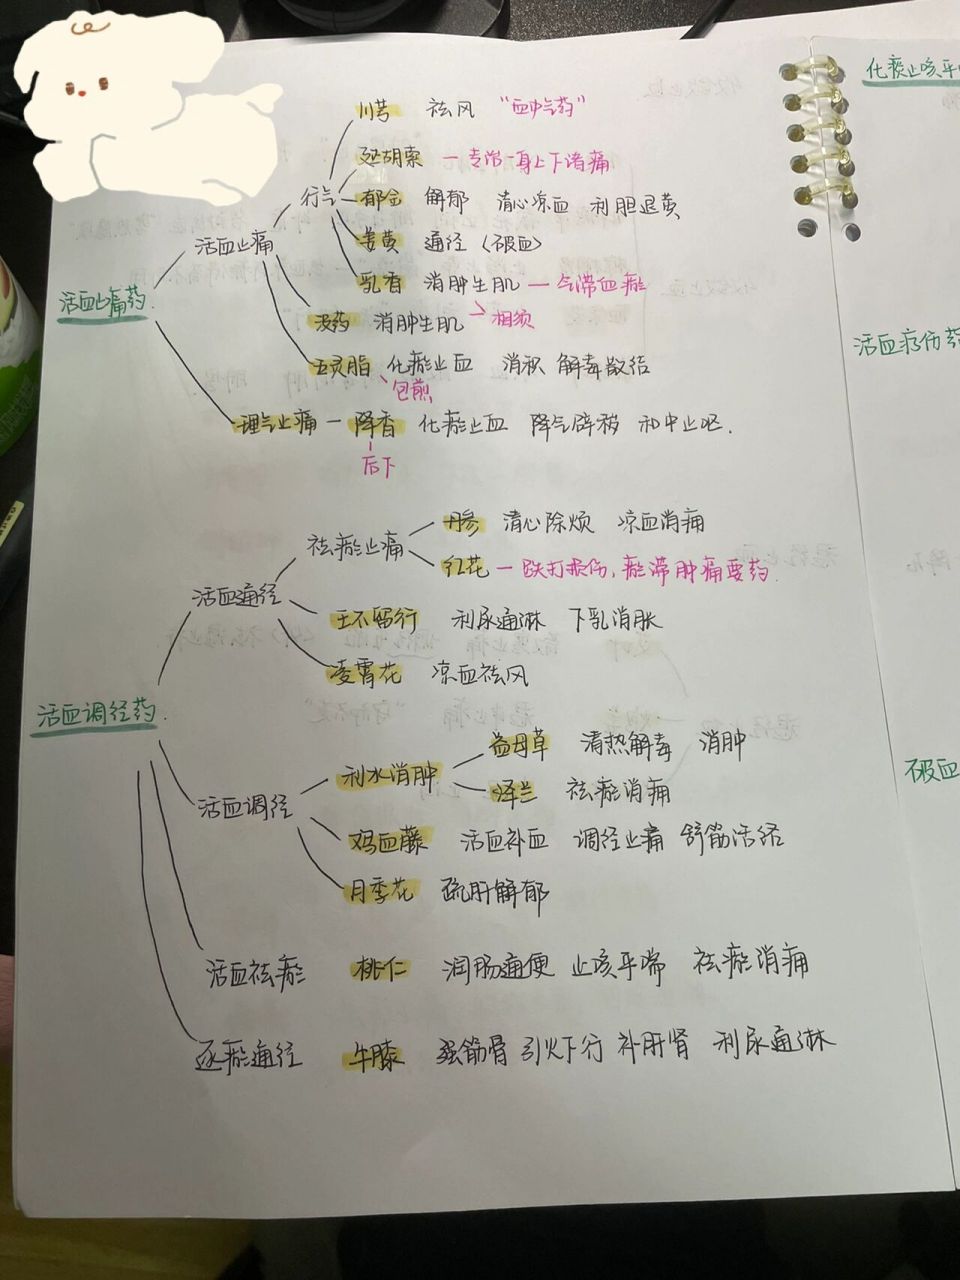 川芎 祛风 “血中气药”
延胡索 — 专治一身上下诸痛
行气 郁金 解郁 清心凉血 利胆退黄
活血止痛 姜黄 通经（破血）
乳香 消肿生肌 — 气滞血瘀
活血止痛药.
没药 消肿生肌 相须
五灵脂 化瘀止血 消积 解毒散结
包煎
理气止痛 — 降香 化瘀止血 降气辟秽 和中止呕.
后下
丹参 清心除烦 凉血消痈
祛瘀止痛
红花 — 跌打损伤, 瘀滞肿痛要药.
活血通经
王不留行 利尿通淋 下乳消胀
凌霄花 凉血祛风
活血调经药.
益母草 清热解毒 消肿
利水消肿
泽兰 祛瘀消痈
活血调经
鸡血藤 活血补血 调经止痛 舒筋活络
月季花 疏肝解郁
活血祛瘀 桃仁 润肠通便 止咳平喘 祛瘀消痈
逐瘀通经 牛膝 强筋骨 引火下行 补肝肾 利尿通淋
化痰止咳平
活血疗伤药
破血